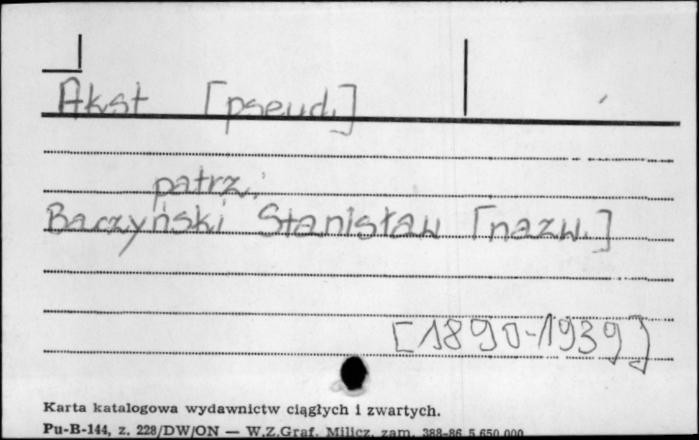 Akst [pseud.]
patrz:
Baczyński Stanisław [nazw.]
[1890-1939]
Karta katalogowa wydawnictw ciągłych i zwartych.
Pu-B-144, z. 228/DW/ON — W.Z.Graf. Milicz, zam. 388-86 5.650.000